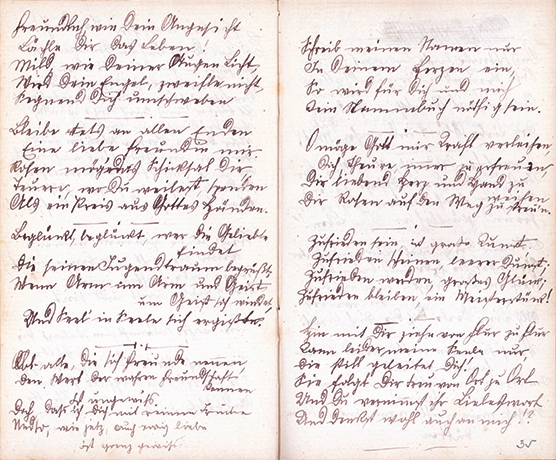 Freundlich wie Dein Angesicht
Lächle Dir das Leben!
Mild, wie Deiner Augen Licht,
Wird Dein Engel, zweifle nicht,
Segnend Dich umschweben
Bleibe stets an allen Enden
Eine liebe Freundin mir.
Rosen möge das Schicksal Dir
Teuere, wo Du weilest, spenden
Als ein Preis aus Gottes Händen.
Beglückt, beglückt, wer die Geliebte
findet
Die seinen Jugendtraum begrüßt,
Wenn Arm um Arm und Geist
um Geist sich windet
Und Seel in Seele sich ergießt.
Ob alle, die sich Freunde nennen
den Wert der wahren Freundschaft
kennen
Ist ungewiß.
Doch, dass ich dich mit reinem Triebe
so, wie jetz, auch ewig liebe
ist ganz gewiß.
Schreib meinen Namen nur
In Deinem Herzen ein,
So wird für Dich und mich
Kein Stammbuch nöthig sein.
O möge Gott mir Kraft verleihen
Dich Theure immer zu erfreuen
Dir liebend Herz und Hand zu
weihen
Dir Rosen auf den Weg zu streun.
Zufrieden sein, ist große Kunst,
Zufrieden scheinen leerer Dunst;
Zufrieden werden großes Glück;
Zufrieden bleiben, ein Meisterstück!
Hin mit Dir ziehn von Flur zu Flur
Kann leider meine Seele nur,
die still geleitet Dich!
Sie folgt Dir treu von Ort zu Ort
Und Du vernimmst ihr Liebeswort
Und denkst wohl auch an mich!?
35